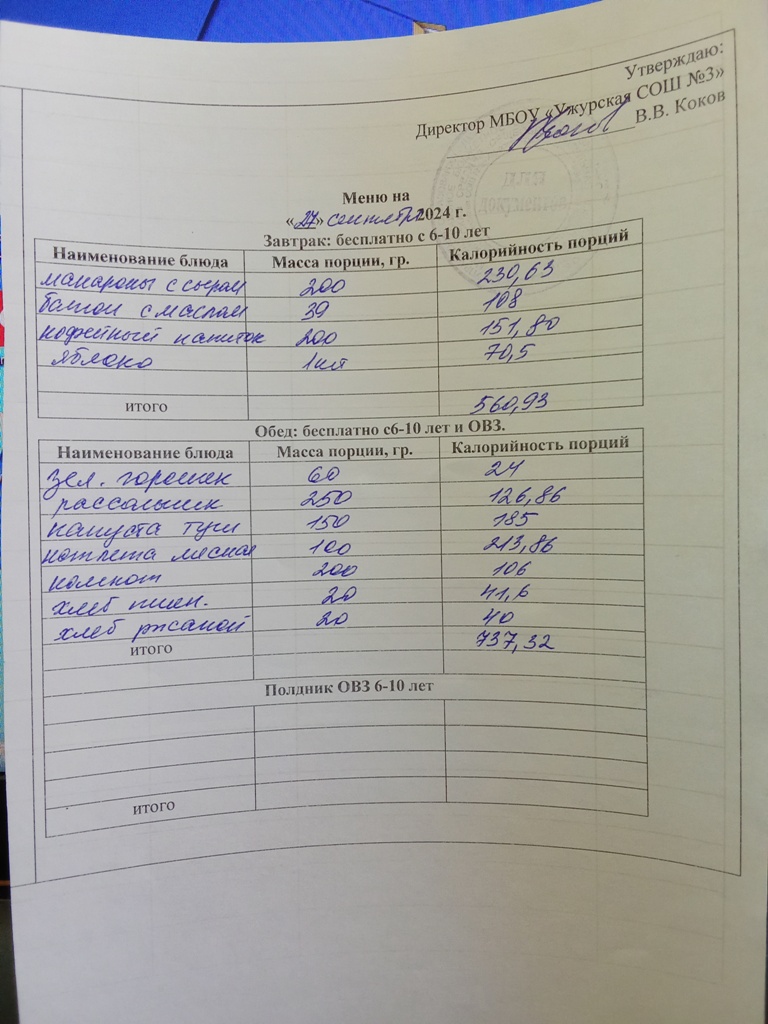 Утверждаю:
Директор МБОУ «Ужурская СОШ №3»
В.В. Коков
для документов
Меню на
«27» сентября 2024 г.
Завтрак: бесплатно с 6-10 лет
Наименование блюда Масса порции, гр. Калорийность порций
макароны с сыром 200 230,63
батон с маслом 39 108
кофейный напиток 200 151,80
яблоко 1шт 70,5
итого 560,93
Обед: бесплатно с6-10 лет и ОВЗ.
Наименование блюда Масса порции, гр. Калорийность порций
зел. горошек 60 24
рассольник 250 126,86
капуста туш 150 185
котлета мясная 100 213,86
компот 200 106
хлеб пшен. 20 41,6
хлеб ржаной 20 40
итого 737,32
Полдник ОВЗ 6-10 лет
итого